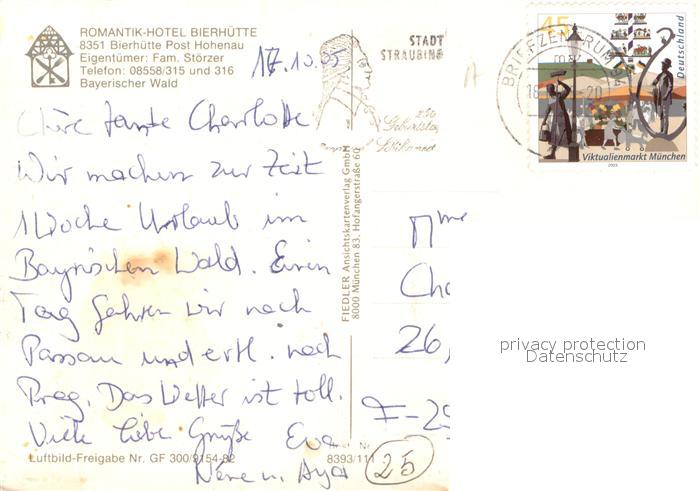 ROMANTIK-HOTEL BIERHÜTTE
8351 Bierhütte Post Hohenau
Eigentümer: Fam. Störzer
Telefon: 08558/315 und 316
Bayerischer Wald
17.10.05
Chère tante Charlotte
Wir machen zur Zeit
1 Woche Urlaub im
Bayrischen Wald. Einen
Tag fahren wir nach
Passau und evtl. nach
Prag. Das Wetter ist toll.
Viele liebe Grüße Eva
Luftbild-Freigabe Nr. GF 300/9154-82
8393/111
FIEDLER Ansichtskartenverlag GmbH
8000 München 83, Hofangerstraße 60
STADT
STRAUBING
250
Geburtstag
BRIEFZENTRUM
18
20
45
Deutschland
Viktualienmarkt München
2003
Mme
Cha
26,
F-29
25
privacy protection
Datenschutz